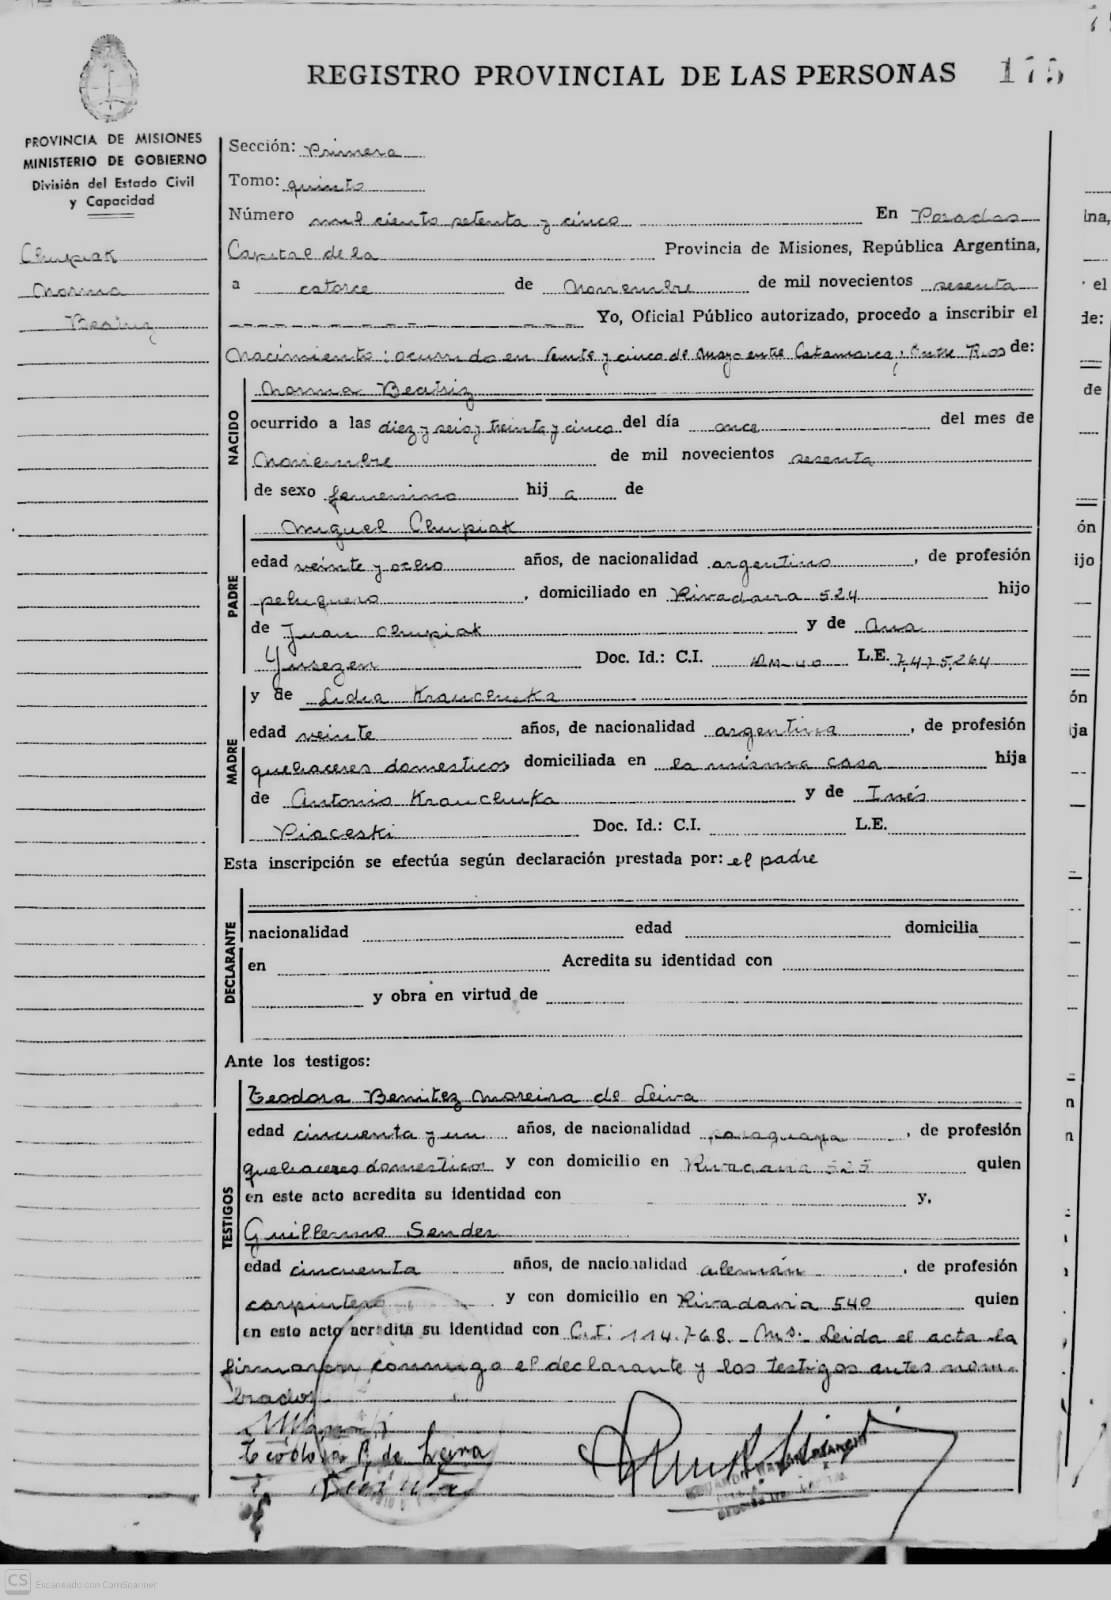 REGISTRO PROVINCIAL DE LAS PERSONAS 175
PROVINCIA DE MISIONES
MINISTERIO DE GOBIERNO
División del Estado Civil
y Capacidad
Chupiak
Norma
Beatriz
Sección: Primera
Tomo: quinto
Número mil ciento setenta y cinco En Posadas
Capital de la Provincia de Misiones, República Argentina,
a catorce de Noviembre de mil novecientos sesenta
Yo, Oficial Público autorizado, procedo a inscribir el
Nacimiento: ocurrido en Veinte y cinco de Mayo entre Catamarca y Entre Rios de:
NACIDO
Norma Beatriz
ocurrido a las diez y seis y treinta y cinco del día once del mes de
Noviembre de mil novecientos sesenta
de sexo femenino hij a de
PADRE
Miguel Chupiak
edad veinte y ocho años, de nacionalidad argentino, de profesión
peluquero, domiciliado en Rivadavia 524 hijo
de Juan Chupiak y de Ana
Doc. Id.: C.I. L.E. 7.475.264
MADRE
y de Lidia Krauchuka
edad veinte años, de nacionalidad argentina, de profesión
quehaceres domesticos domiciliada en la misma casa hija
de Antonio Krauchuka y de Inés
Piaceski Doc. Id.: C.I. L.E.
Esta inscripción se efectúa según declaración prestada por: el padre
DECLARANTE
nacionalidad edad domicilia
en Acredita su identidad con
y obra en virtud de
Ante los testigos:
TESTIGOS
Teodora Benitez Moreira de Leiva
edad cincuenta y un años, de nacionalidad paraguaya, de profesión
quehaceres domesticos y con domicilio en Rivadavia 525 quien
en este acto acredita su identidad con y,
Guillermo Sender
edad cincuenta años, de nacionalidad alemán, de profesión
carpintero y con domicilio en Rivadavia 540 quien
en esto acto acredita su identidad con C.I. 114.768. Ms. Leida el acta la
firmaron conmigo el declarante y los testigos antes nom-
brados
Teodora B. de Leiva
CS Escaneado con CamScanner